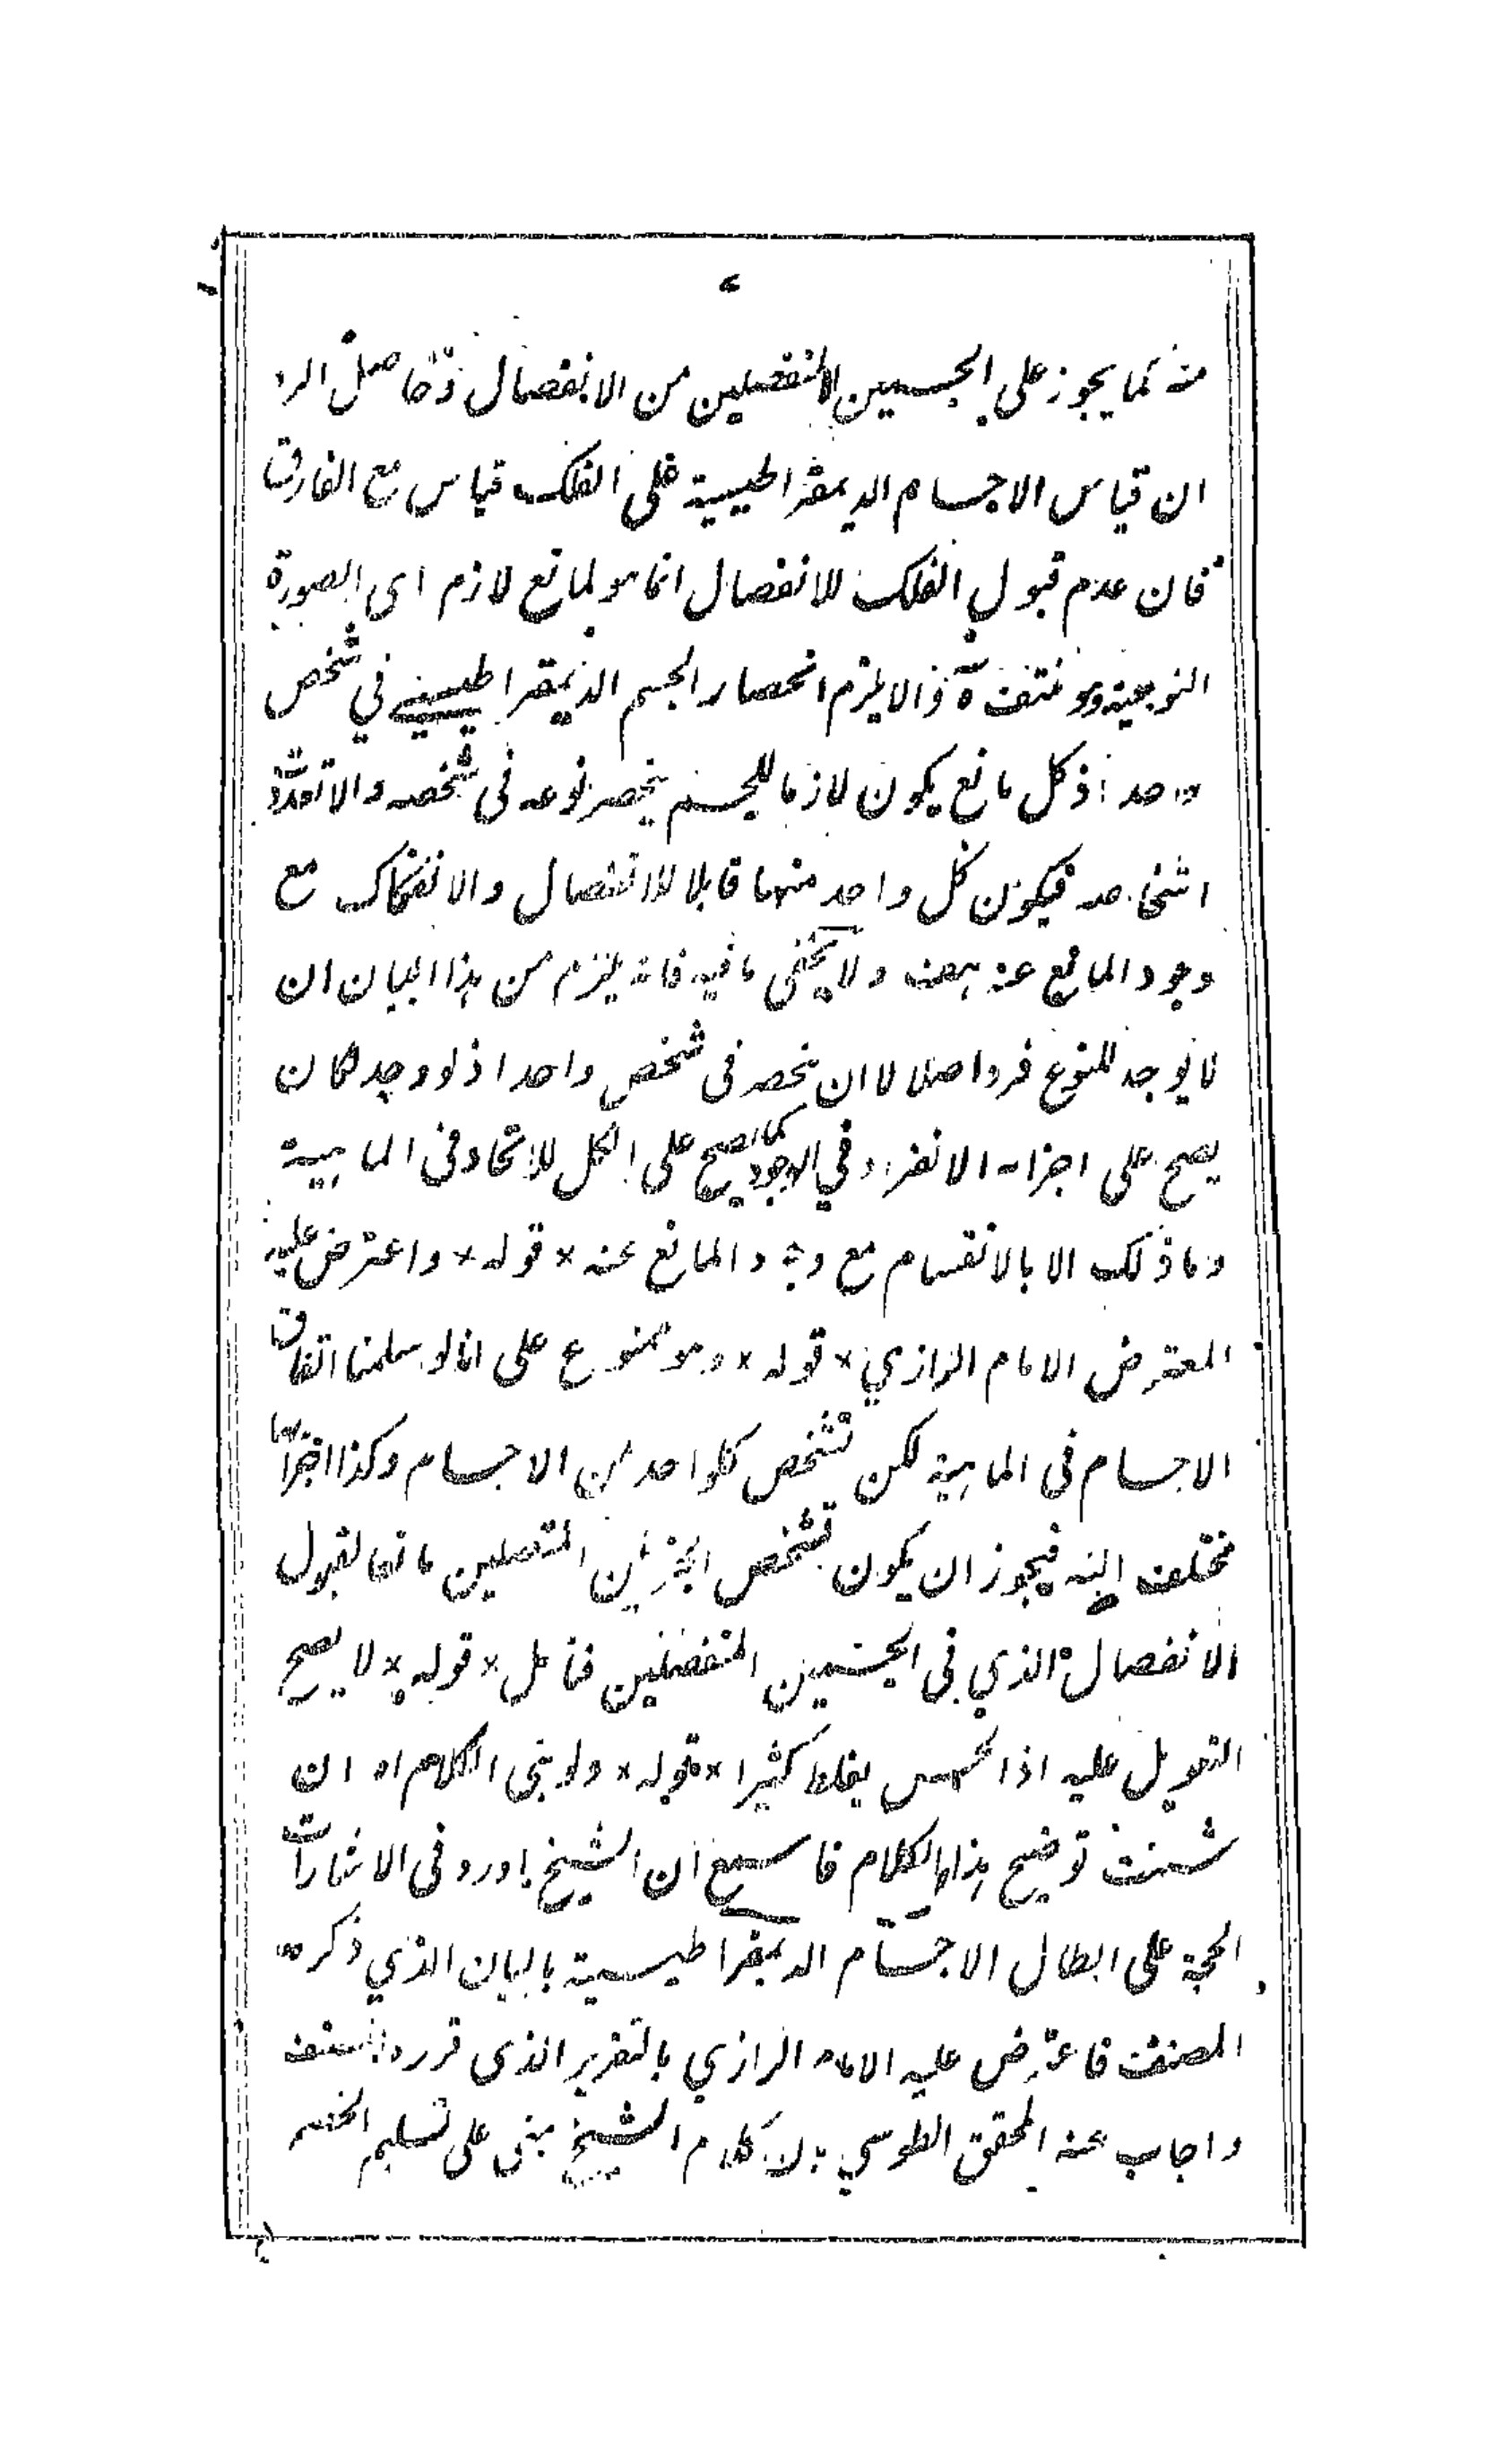 منه كما يجوز على الجسمين المنفصلين من الانفصال وحاصل الرد
ان قياس الاجسام الديمقراطيسية على الفلك قياس مع الفارق
فان عدم قبول الفلك للانفصال انما هو لمانع لازم اى الصورة
النوعية وهو منتف والا يلزم انحصار الجسم الديمقراطيسي في شخص
واحد اذ كل مانع يكون لازما للجسم ينحصر نوعه فى شخصه والا تعدد
اشخاصه فيكون كل واحد منهما قابلا للانفصال والانفكاك مع
وجود المانع عنه هف ولا يخفى ما فيه فانه يلزم من هذا البيان ان
لا يوجد للنوع فرد اصلا لا ان ينحصر فى شخص واحد اذ لو وجد لكان
يصح على اجزائه الانفراد في الوجود كما يصح على الكل للاتحاد فى الماهية
وما ذلك الا بالانقسام مع وجود المانع عنه * قوله * واعترض عليه
المعترض الامام الرازي * قوله * وهو ممنوع على انا لو سلمنا اتفاق
الاجسام فى الماهية لكن تشخص كلواحد من الاجسام وكذا اجزائها
مختلف البتة فيجوز ان يكون تشخص الجزئين المتصلين مانعا لقبول
الانفصال الذي فى الجسمين المنفصلين فتأمل * قوله * لا يصح
التعويل عليه اذ الحس يغلط كثيرا * قوله * ولو بنى الكلام اه ان
شئت توضيح هذا الكلام فاسمع ان الشيخ اورد فى الاشارات
الحجة على ابطال الاجسام الديمقراطيسية بالبيان الذي ذكره
المصنف فاعترض عليه الامام الرازي بالتقرير الذى قرره المصنف
واجاب عنه المحقق الطوسي بان كلام الشيخ مبنى على تسليم الخصم